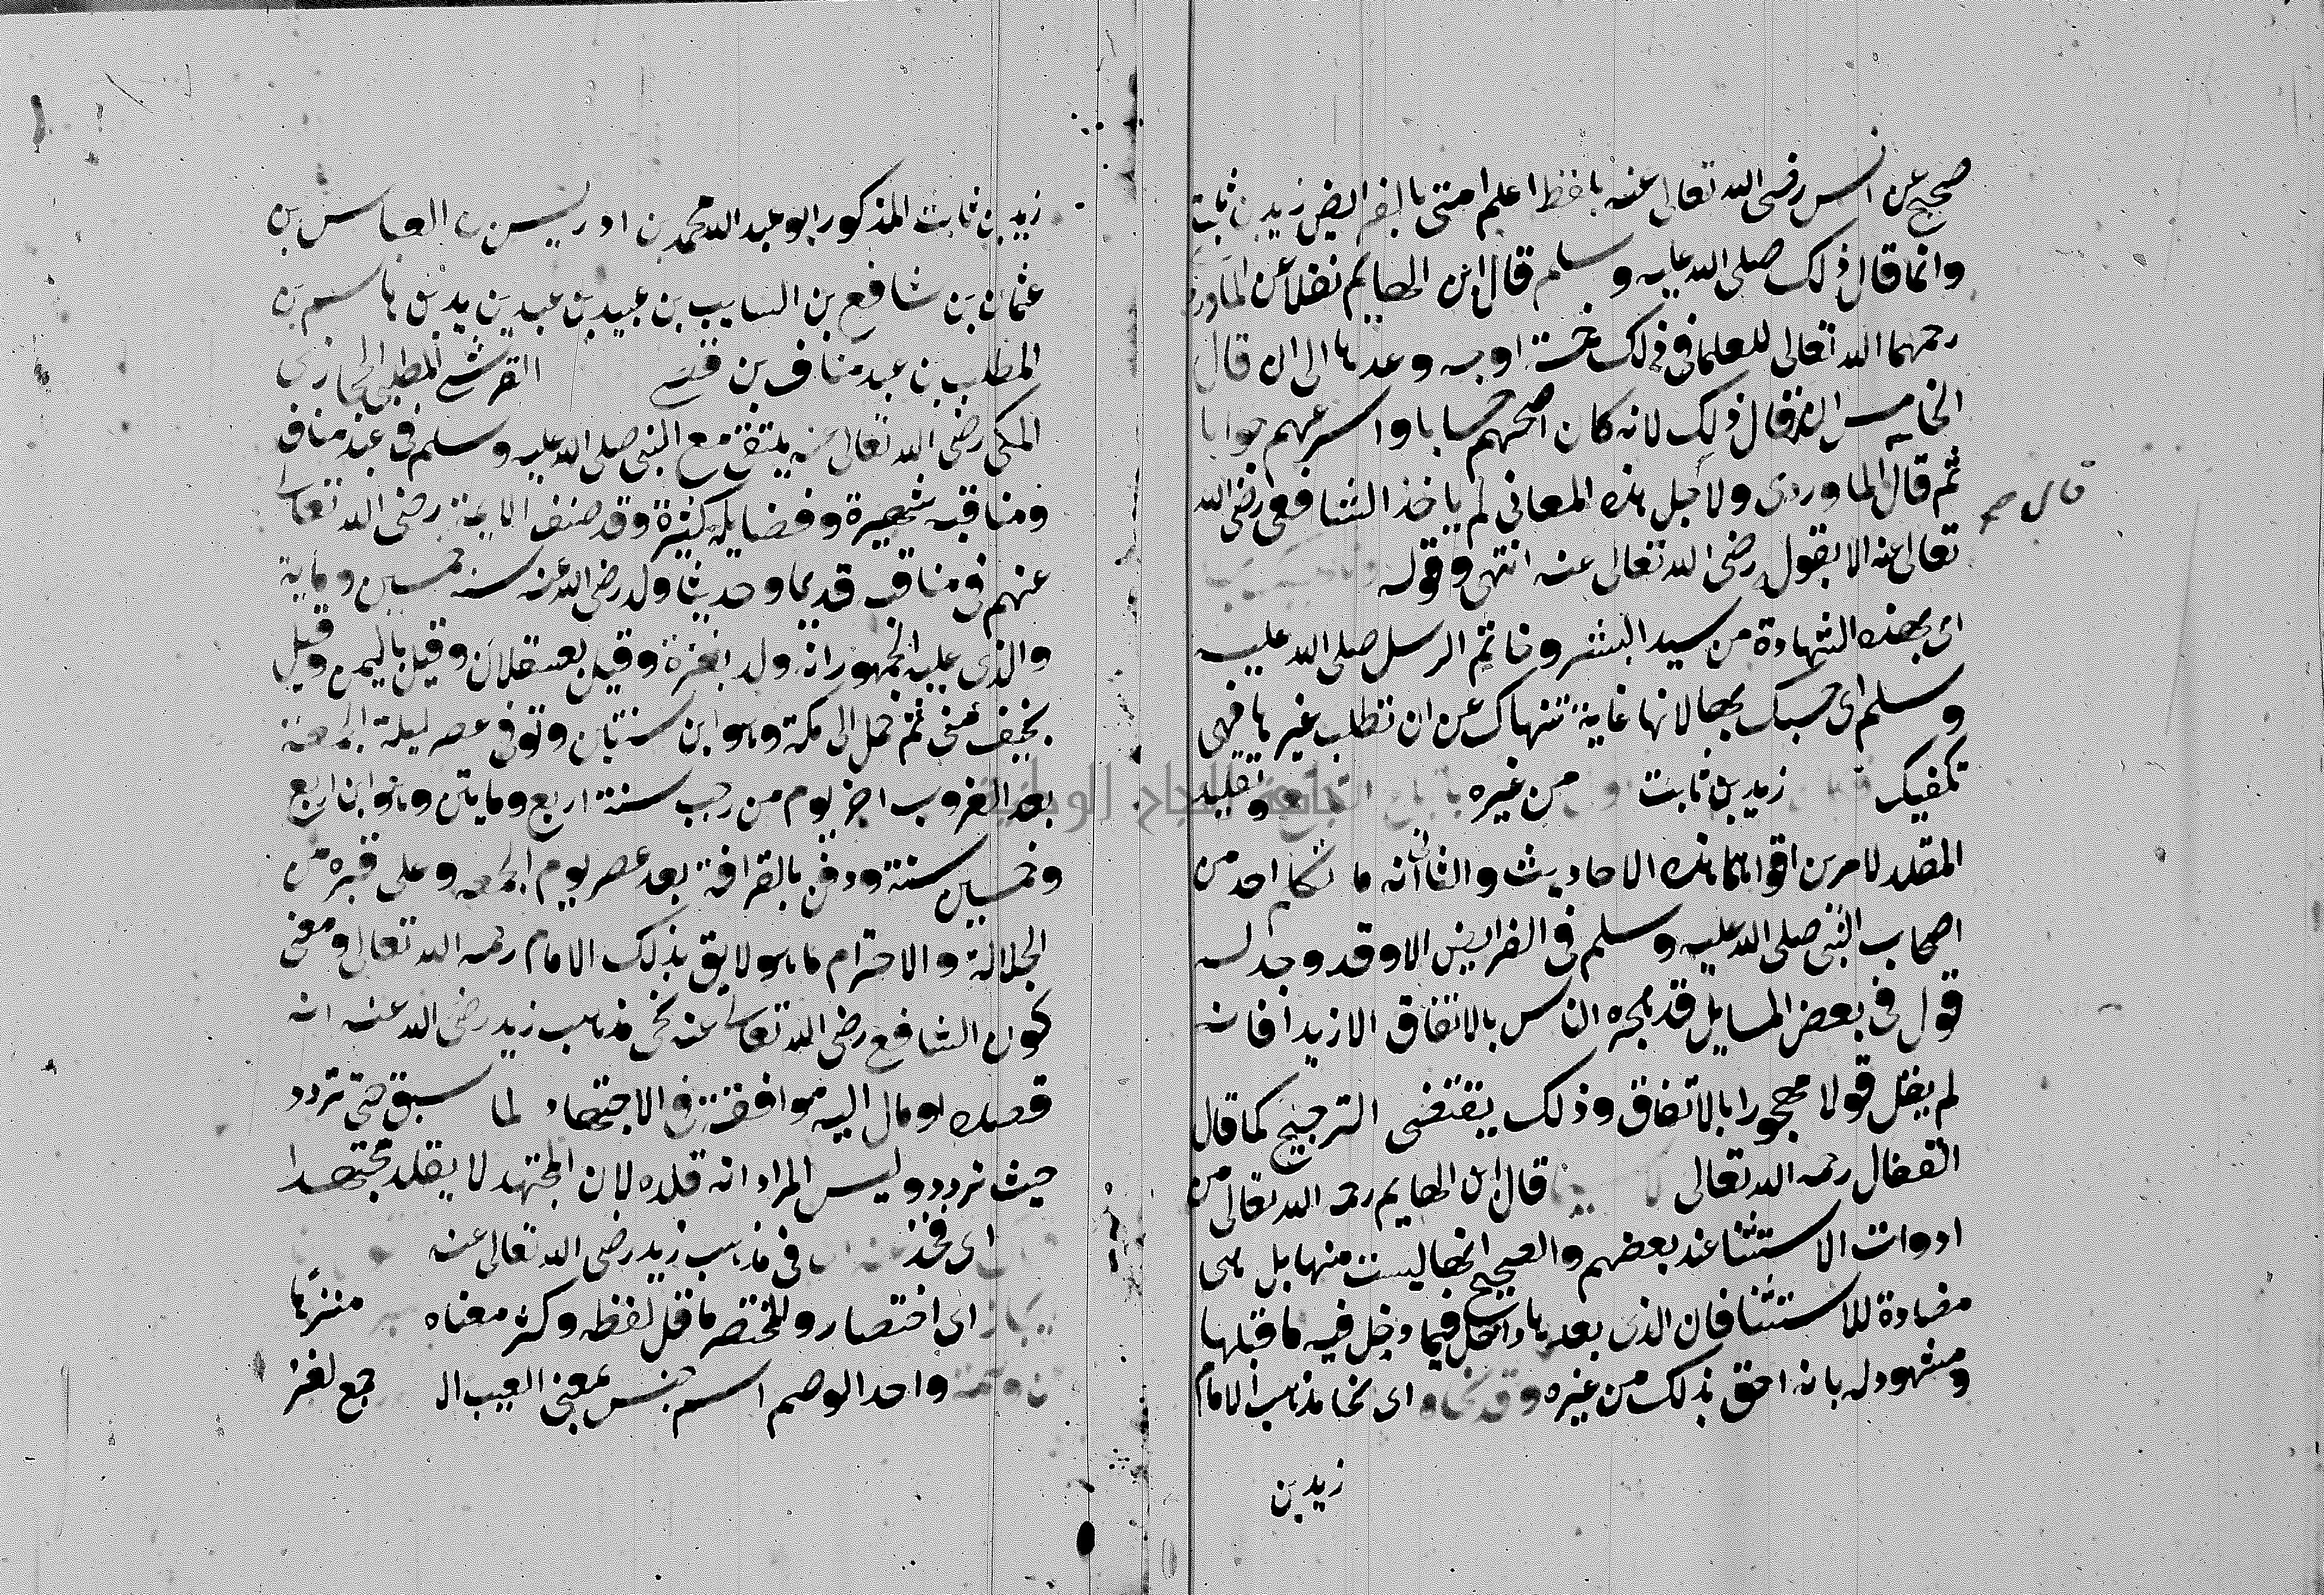 صحيح عن انس رضى الله تعالى عنه بلفظ اعلم امتى بالفرايض زيد بن ثابت
وانما قال ذلك صلى الله عليه وسلم قال ابن الهايم نقلا عن الماوردى
رحمهما الله تعالى للعلما فى ذلك خمسة اوجه وعدها الى ان قال
الخامس انه قال ذلك لانه كان اصحهم حسابا واسرعهم جوابا
ثم قال الماوردى ولاجل هذه المعانى لم ياخذ الشافعى رضى الله
تعالى عنه الا بقوله رضى الله تعالى عنه انتهى وقوله
اى بهذه الشهادة من سيد البشر وخاتم الرسل صلى الله عليه
وسلم اى حسبك بها لانها غاية تنهاك عن ان تطلب غيرها فهى
تكفيك زيد بن ثابت من غيره وتقليد
المقلد لامرين اقواهما هذه الاحاديث والثانى انه ما تكلم احد من
اصحاب النبى صلى الله عليه وسلم فى الفرايض الا وقد وجد له
قول فى بعض المسايل قد هجره الناس بالاتفاق الا زيدا فانه
لم يقل قولا مهجورا بالاتفاق وذلك يقتضى الترجيح كما قال
القفال رحمه الله تعالى قال ابن الهايم رحمه الله تعالى من
ادوات الاستثنا عند بعضهم والصحيح انها ليست منها بل هى
مضادة للاستثنا فان الذى بعدها داخل فيما دخل فيه ما قبلها
ومشهود له بانه احق بذلك من غيره وقد نحاه اى نحا مذهب الامام
زيد بن
قال صح
زيد بن ثابت المذكور ابو عبد الله محمد بن ادريس بن العباس بن
عثمان بن شافع بن السايب بن عبيد بن عبد يزيد بن هاشم بن
المطلب بن عبد مناف بن قصى القرشى المطلبى الحجازى
المكى رضى الله تعالى عنه يلتقى مع النبى صلى الله عليه وسلم فى عبد مناف
ومناقبه شهيرة وفضايله كثيرة وقد صنف الايمة رضى الله تعالى
عنهم فى مناقبه قديما وحديثا ولد رضى الله عنه سنة خمسين وماية
والذى عليه الجمهور انه ولد بغزة وقيل بعسقلان وقيل باليمن وقيل
بخيف منى ثم حمل الى مكة وهو ابن سنتين وتوفى عصر ليلة الجمعة
بعد الغروب اخر يوم من رجب سنة اربع ومايتين وهو ابن اربع
وخمسين سنة ودفن بالقرافة بعد عصر يوم الجمعه وعلى قبره من
الجلالة والاحترام ما هو لايق بذلك الامام رحمه الله تعالى ومعنى
كون الشافعى رضى الله تعالى عنه نحى مذهب زيد رضى الله عنه انه
قصده او مال اليه موافقة فى الاجتهاد لما سبق حتى تردد
حيث تردد وليس المراد انه قلده لان المجتهد لا يقلد مجتهدا
اى فخذ فى مذهب زيد رضى الله تعالى عنه
اى اختصار والمختصر ما قل لفظه وكثر معناه منزها
واحد الوصم اسم جنس بمعنى العيب ال جمع لغز
جامعة النجاح الوطنية